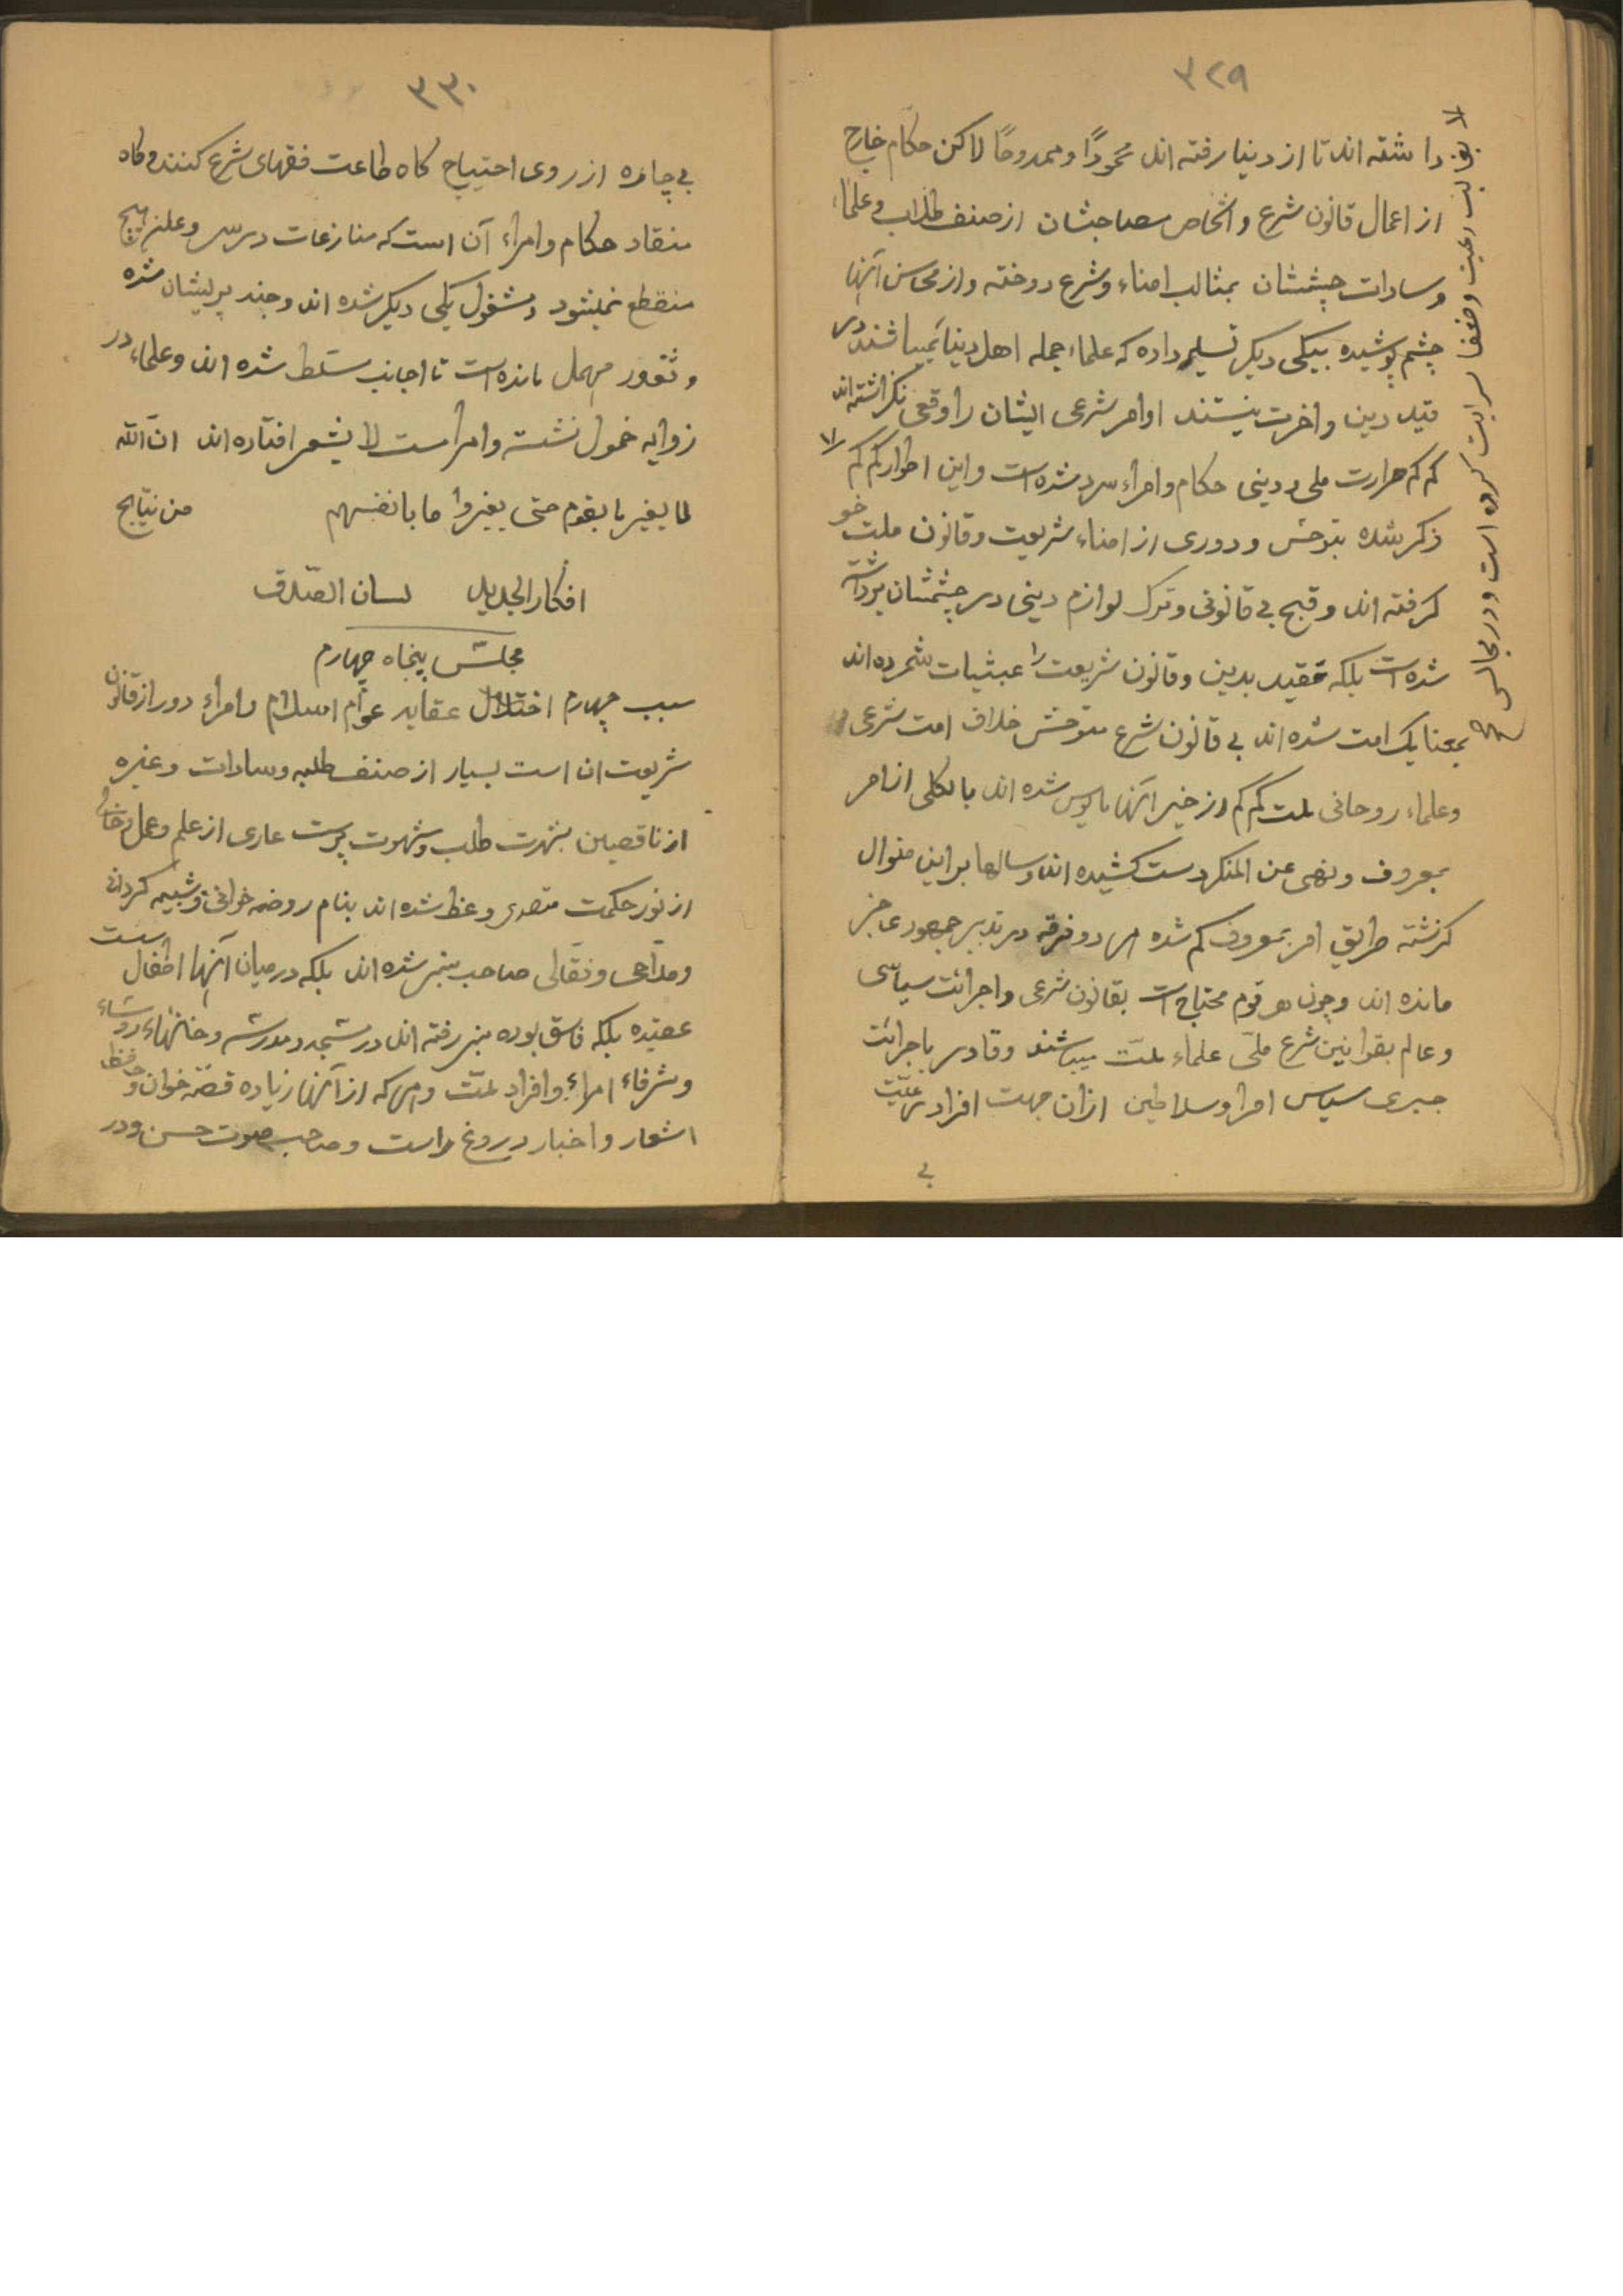 ۳۲۹
داشته اند تا از دنیا رفته اند محمودًا وممدوحًا لاکن حکام خارج
از اعمال قانون شرع واشخاص مصاحبشان از صنف طلاب وعلماء
وسادات چشمشان بمثالب امناء وشرع دوخته واز محاسن آنها
چشم پوشیده بیکی دیکر تسلیم داده که علماء جمله اهل دنیا میباشند در
قید دین واخرت نیستند اوامر شرعی ایشان را وقعی نکزاشته اند
کم کم حرارت ملی ودینی حکام وامراء سرد شده است واین اطوار کم کم
ذکر شده بتوحش ودوری از امناء شریعت وقانون ملت خو
کرفته اند وقبح بی قانونی وترک لوازم دینی در چشمشان برداشته
شده است بلکه تقید بدین وقانون شریعت را عبثیات شمرده اند
بمعنا یک امت شده اند بی قانون شرع متوحش خلاف امت شرعی
وعلماء روحانی ملت کم کم از خیر آنها مایوس شده اند بالکلی از امر
بمعروف ونهی عن المنکر دست کشیده اند وسالها براین منوال
کزشته طریق امر بمعروف کم شده هر دو فرقه در تدبیر جمهور عاجز
مانده اند وچون هر قوم محتاج است بقانون شرعی واجرائت سیاسی
وعالم بقوانین شرع ملی علماء ملت میباشند وقادر باجرائت
جبری سیاسی امرا وسلاطین ازان جهت افراد رعیت
بی
بقالب رعیت وضعفا سرایت کرده است ودر مجالس
۳۳۰
بی چاره از روی احتیاج کاه طاعت فقهای شرع کنند وکاه
منقاد حکام وامراء آن است که منازعات در سر وعلن هیچ
منقطع نمیشود ومشغول یکی دیکر شده اند وجند پریشان شده
وثغور مهمل مانده است تا اجانب مسلط شده اند وعلماء در
زوایه خمول نشسته وامراء مست لا یشعر افتاده اند ان الله
لا یغیر ما بقوم حتی یغیروا ما بانفسهم من نتایج
افکار الجدید لسان الصدق
مجلس پنجاه چهارم
سبب چهارم اختلال عقاید عوام اسلام وامراء دور از قانون
شریعت ان است بسیار از صنف طلبه وسادات وغیره
از ناقصین شهرت طلب وشهوت پرست عاری از علم وعمل وخالی
از نور حکمت متصدی وعظ شده اند بنام روضه خوانی وشبیه کردانی
ومداحی ونقالی صاحب منبر شده اند بلکه در میان آنها اطفال است
عقیده بلکه فاسق بوده منبر رفته اند در مسجد ومدرسه وخانهاء روساء
وشرفاء امراء وافراد ملت وهر که از آنها زیاده قصه خوان وحفظ
اشعار واخبار دروغ راست وصاحب صوت حسن ودر